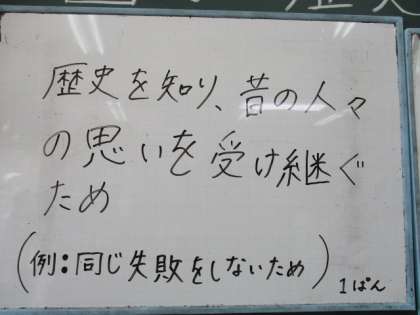 歴史を知り、昔の人々
の思いを受け継ぐ
ため
(例:同じ失敗をしないため)
1ぱん